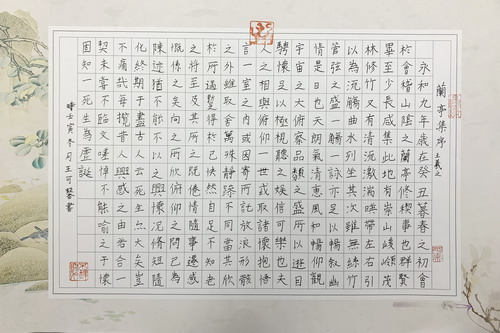 蘭亭集序 王羲之
永和九年歲在癸丑暮春之初會
於會稽山陰之蘭亭修禊事也群賢
畢至少長咸集此地有崇山峻領茂
林修竹又有清流激湍暎帶左右引
以為流觴曲水列坐其次雖無絲竹
管弦之盛一觴一詠亦足以暢敘幽
情是日也天朗氣清惠風和暢仰觀
宇宙之大俯察品類之盛所以遊目
騁懷足以極視聽之娛信可樂也夫
人之相與俯仰一世或取諸懷抱悟
言一室之內或因寄所託放浪形骸
之外雖取舍萬殊靜躁不同當其欣
於所遇蹔得於己快然自足不知老
之將至及其所之既倦情隨事遷感
慨係之矣向之所欣俯仰之間已為
陳迹猶不能不以之興懷況修短隨
化終期于盡古人云死生亦大矣豈
不痛哉每攬昔人興感之由若合一
契未嘗不臨文嗟悼不能喻之于懷
固知一死生為虛誕
時壬寅冬月王可馨書